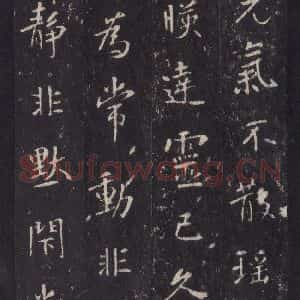 元氣不散瑶
暎達靈已久
為常動非
静非默閑
Shufawang.CN